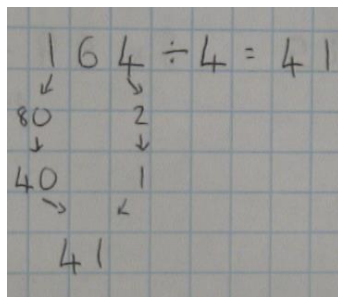 164 ÷ 4 = 41
↙ ↘
80 2
↓ ↓
40 1
↘ ↙
41